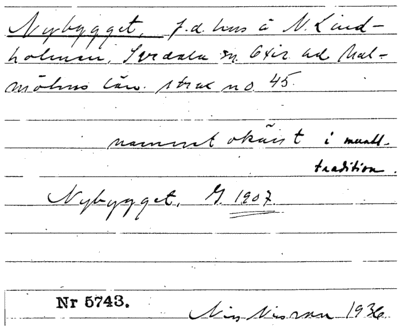 Nybygget, f.d. hus å N. Lind-
holmen, Svedala sn, Oxie hd Mal-
möhus län. strax no 45.
namnet okänt i muntl.
tradition.
Nybygget, G. 1907.
Nr 5743.
Nils Nilsson 1936